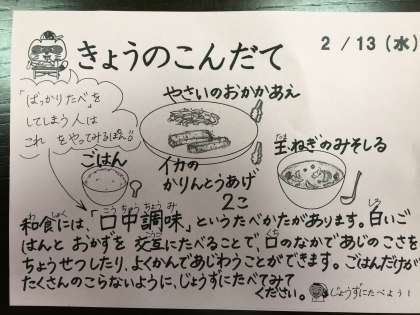 きょうのこんだて
2/13(水)
「ばっかりたべ」を
してしまう人は
これ をやってみるぽん!!
やさいのおかかあえ
ごはん
イカの
かりんとうあげ
2こ
玉ねぎのみそしる
たま
わしょく こうちゅうちょうみ しろ
和食には、「口中調味」というたべかたがあります。白いご
こうご くち
はんと おかずを 交互にたべることで、口のなかであじのこさを
ちょうせつしたり、よくかんであじわうことができます。ごはんだけが
たくさんのこらないように、じょうずにたべてみて
ください。
じょうずにたべよう!